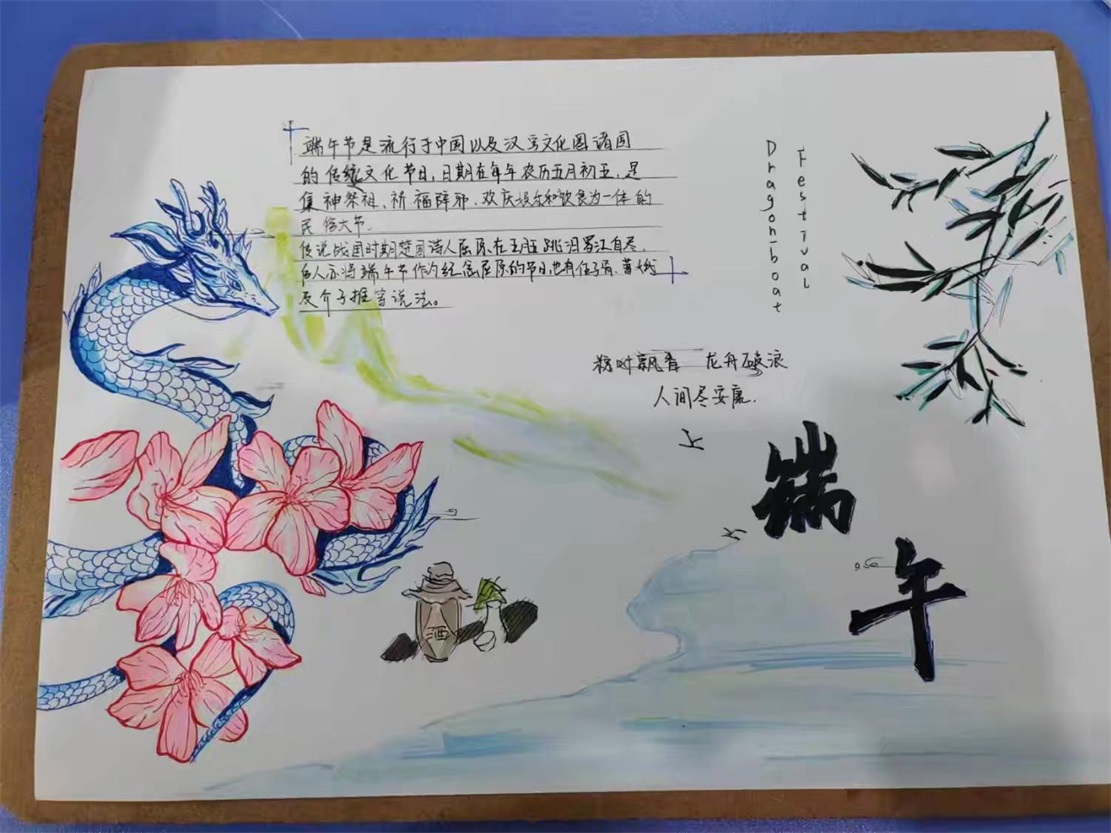 端午节是流行于中国以及汉字文化圈诸国
的传统文化节日,日期在每年农历五月初五,是
集神祭祖、祈福辟邪、欢庆娱乐和饮食为一体的
民俗大节.
传说战国时期楚国诗人屈原在五月五跳汨罗江自尽.
后人亦将端午节作为纪念屈原的节日,也有伍子胥、曹娥
及介子推等说法。
Dragon-boat
Festival
粽叶飘香 龙舟破浪
人间尽安康.
端
午
酒